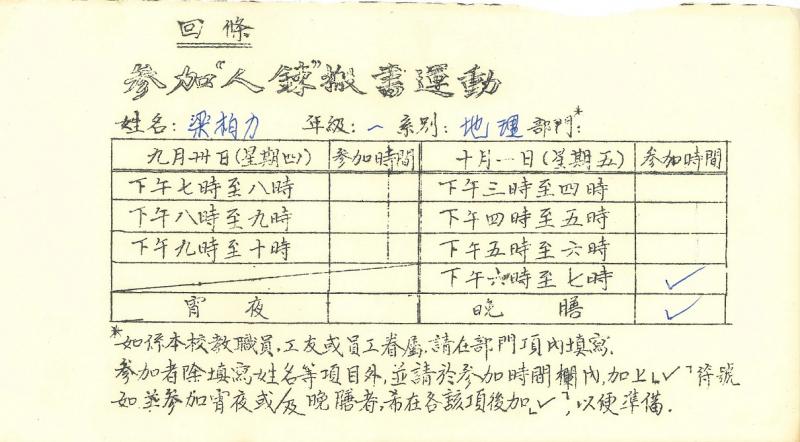 回條
參加“人鍊”搬書運動
姓名：梁柏力 年級：一 系別：地理 部門*：
九月卅日(星期四) 參加時間 十月一日(星期五) 參加時間
下午七時至八時 下午三時至四時
下午八時至九時 下午四時至五時
下午九時至十時 下午五時至六時
下午六時至七時 ✓
宵夜 晚膳 ✓
*如係本校教職員、工友或員工眷屬，請在部門項內填寫.
參加者除填寫姓名等項目外，並請於參加時間欄內，加上「✓」符號
如並參加宵夜或/及晚膳者，希在各該項後加「✓」，以便準備.